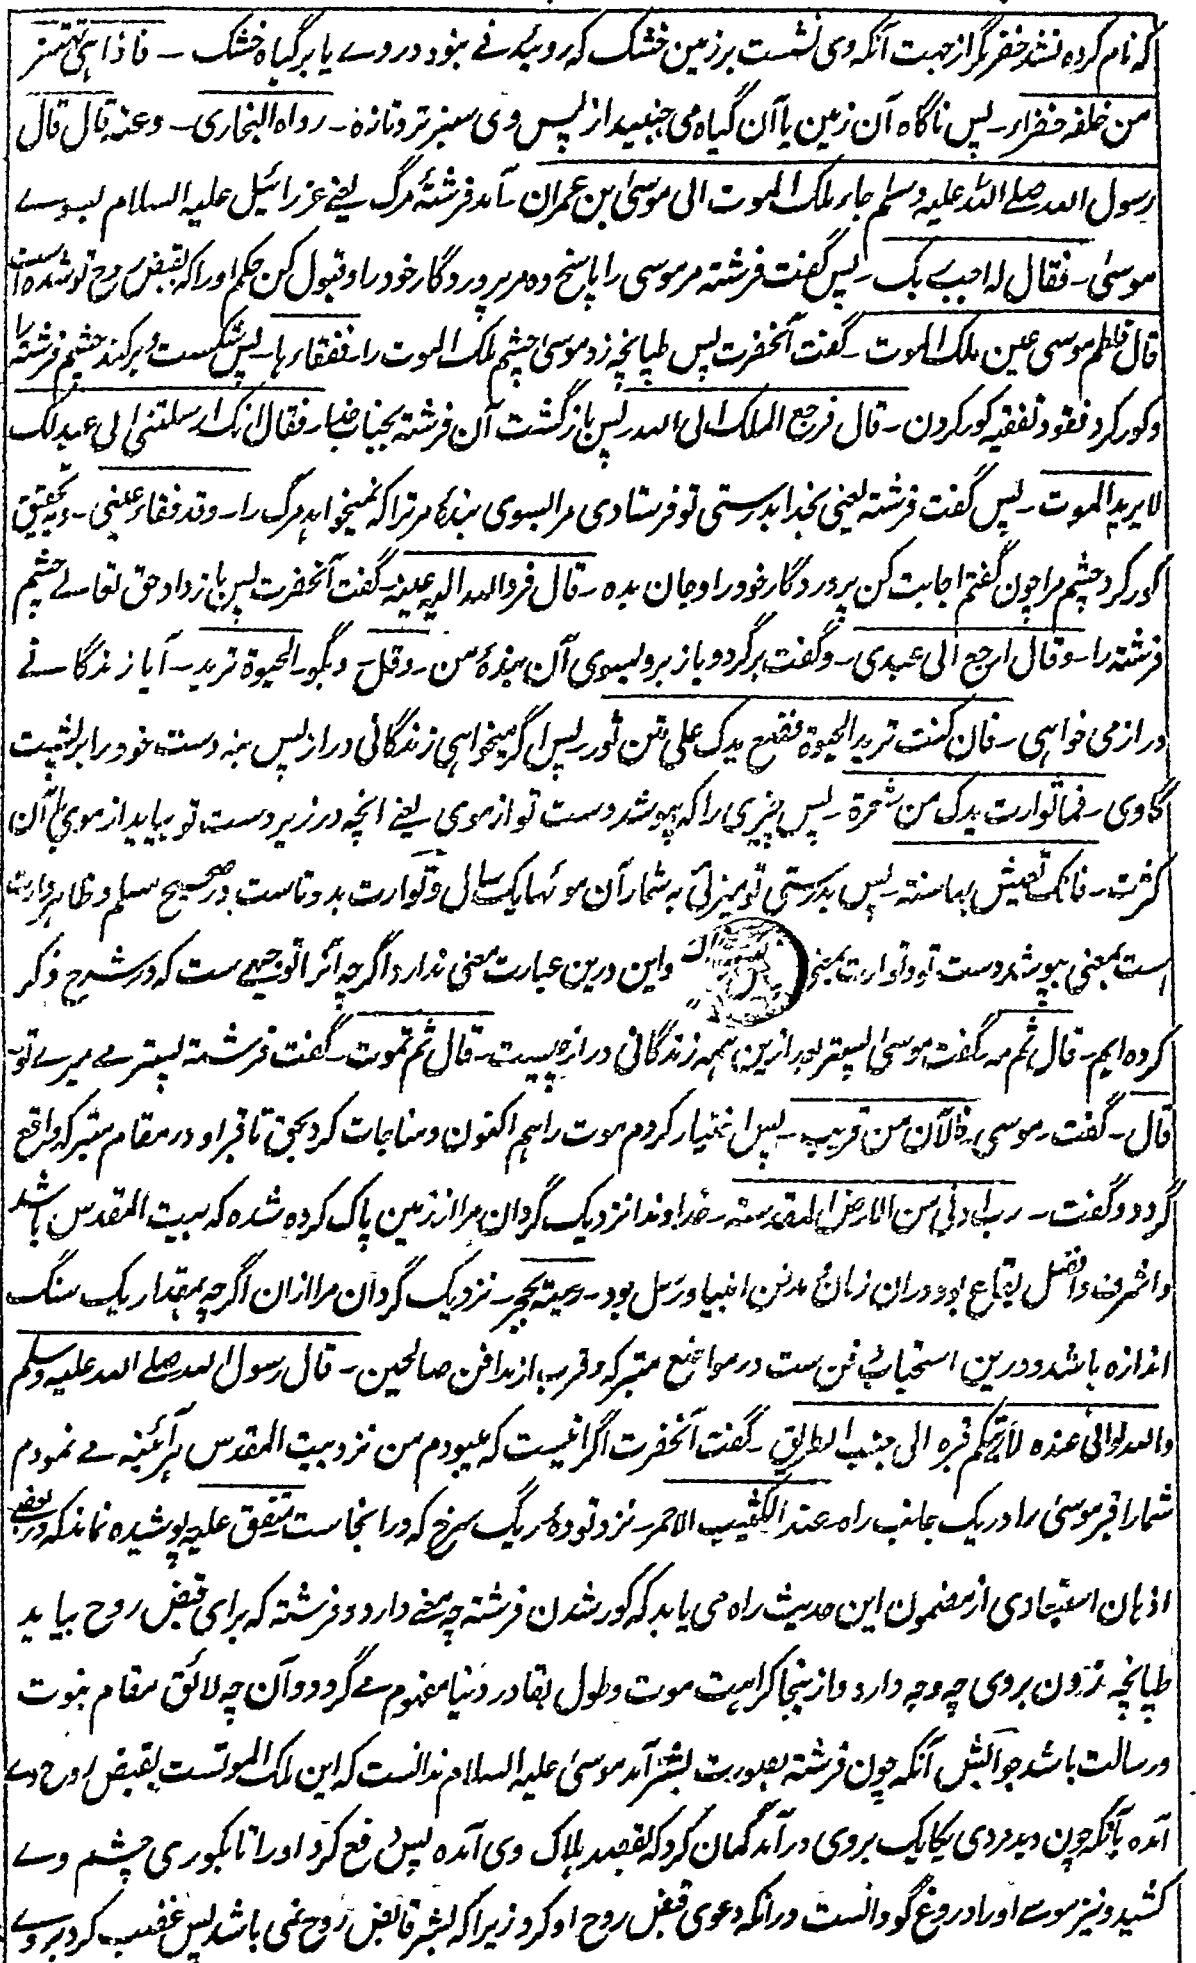 که نام کرده نشد خضر مگر از جهت آنکه وی نشست بر زمین خشک که روئیدنے نبود در وے یا بر گیاه خشک ـ فاذا هی تهتز
من خلفه خضراء ـ پس ناگاه آن زمین یا آن گیاه می جنبید از پس وی سبز تر و تازه ـ رواه البخاری ـ وعنه قال قال
رسول الله صلے الله علیه وسلم جاء ملک الموت الی موسیٰ بن عمران ـ آمد فرشتۂ مرگ یعنے عزرائیل علیه السلام بسوے
موسیٰ ـ فقال له اجب ربک ـ پس گفت فرشته مر موسی را پاسخ ده مر پروردگار خود را و قبول کن حکم او را که بقبض روح تو شده است
قال فلطم موسی عین ملک الموت ـ گفت آنحضرت پس طپانچه زد موسیٰ چشم ملک الموت را ـ ففقاءها ـ پس شکست و بر کند چشم فرشته را
و کور کرد فقود تفقیه کور کردن ـ قال فرجع الملک الی الله ـ پس بازگشت آن فرشته بجناب خدا ـ فقال انک ارسلتنی الی عبد لک
لا یرید الموت ـ پس گفت فرشته یعنی بخدا بدرستی تو فرستادی مرا بسوی بندۂ مر ترا که نمیخواهد مرگ را ـ وقد فقاء عینی ـ و بتحقیق
کور کرد چشم مرا چون گفتم اجابت کن پروردگار خود را و جان بده ـ قال فرد الله الیه عینه ـ گفت آنحضرت پس باز داد حق تعالے چشم
فرشته را ـ وقال ارجع الی عبدی ـ و گفت برگرد و باز برو بسوی آن بندۂ من ـ وقل ـ و بگو ـ الحیوة ترید ـ آیا زندگانے
دراز می خواهی ـ فان کنت ترید الحیوة فضع یدک علی متن ثور ـ پس اگر میخواهی زندگانی دراز پس بنه دست خود را بر پشت
گاوی ـ فما توارت یدک من شعرة ـ پس چیزی را که بپوشد دست تو از موی یعنے انچه در زیر دست تو بیاید از موی آن
کثرت ـ فانک تعیش بها سنة ـ پس بدرستی تو میزئی به شمار آن موئها یک سال و توارت بدو تاست در صحیح مسلم و ظاهر وارت
است بمعنی بپوشد دست تو و توارت بمعنی و این درین عبارت معنی ندارد اگرچه آنرا توجیهے ست که در شرح ذکر
کرده ایم ـ قال ثم مه ـ گفت موسیٰ پستر بعد ازین همه زندگانی دراز چیست ـ قال ثم تموت ـ گفت فرشته پستر مے میرے تو
قال ـ گفت ـ موسی ـ فالآن من قریب ـ پس اختیار کردم موت را هم اکنون و مناجات کرد بحق تا قبر او در مقام متبرکه واقع
گردد و گفت ـ رب ادنی من الارض المقدسة ـ خداوندا نزدیک گردان مرا از زمین پاک کرده شده که بیت المقدس باشد
و اشرف و افضل بقاع بود و دران زمان مدفن انبیا و رسل بود ـ رمیة بحجر ـ نزدیک گردان مرا ازان اگرچه بمقدار یک سنگ
اندازه باشد و درین استحباب دفن ست در مواضع متبرکه و قرب از مدافن صالحین ـ قال رسول الله صلے الله علیه وسلم
والله لو انی عنده لاریتکم قبره الی جنب الطریق ـ گفت آنحضرت اگر چنین ست که میبودم من نزد بیت المقدس هر آئینه مے نمودم
شما را قبر موسیٰ را در یک جانب راه ـ عند الکثیب الاحمر ـ نزد تودۂ ریگ سرخ که در انجاست متفق علیه پوشیده نماند که در بعضے
اذهان استبعادی از مضمون این حدیث راه می یابد که کور شدن فرشته چه معنے دارد و فرشته که برای قبض روح بیاید
طپانچه زدن بروی چه وجه دارد و از ینجا کراهت موت و طول بقا در دنیا مفهوم مے گردد و آن چه لائق مقام نبوت
و رسالت باشد جوابش آنکه چون فرشته بصورت بشر آمد موسیٰ علیه السلام ندانست که این ملک الموتست بقبض روح وے
آمده یا آنکه چون دید مردی یکایک بروی در آمد گمان کرد که بقصد هلاک وی آمده پس دفع کرد او را تا بکوری چشم وے
کشید و نیز موسے او را دروغ گو دانست در آنکه دعوی قبض روح او کرد زیرا که بشر قابض روح نمی باشد پس غضب کرد بروے